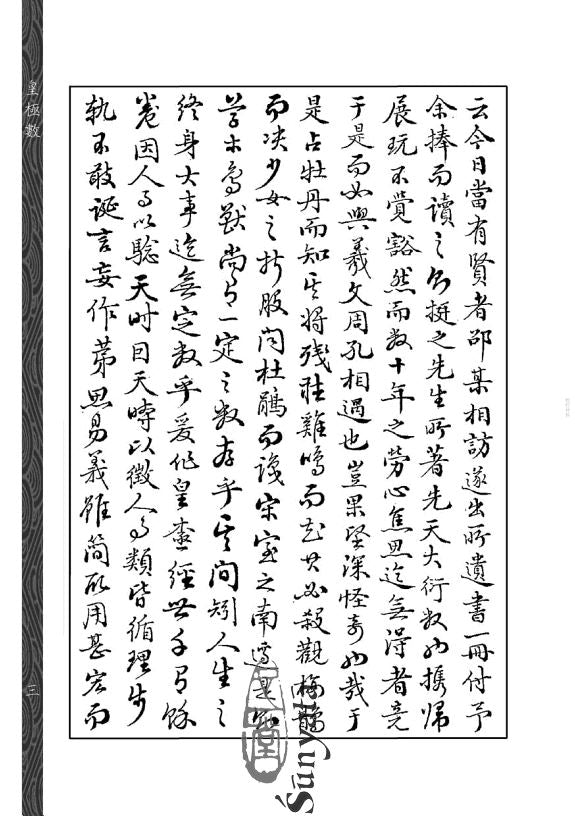 皇極數
三
云今日當有賢者邵某相訪遂出所遺書一冊付予
余捧而讀之乃挺之先生所著先天大衍數也攜歸
展玩不覺豁然而数十年之勞心焦思迄無得者竟
于是而如與羲文周孔相遇也豈果堅深怪奇也哉于
是占牡丹而知其将残註雞鳴而知其必殺觀梅
而决少女之折股问杜鵑而識宋室之南遷是
草木鳥獸尚有一定之数存乎其间矧人生之
終身大事迄無定数乎爰作皇極經世千有餘
卷因人事以驗天时因天時以徵人事類皆循理步
軌不敢誕言妄作第思易義雖簡所用甚宏而
Śūnyatā